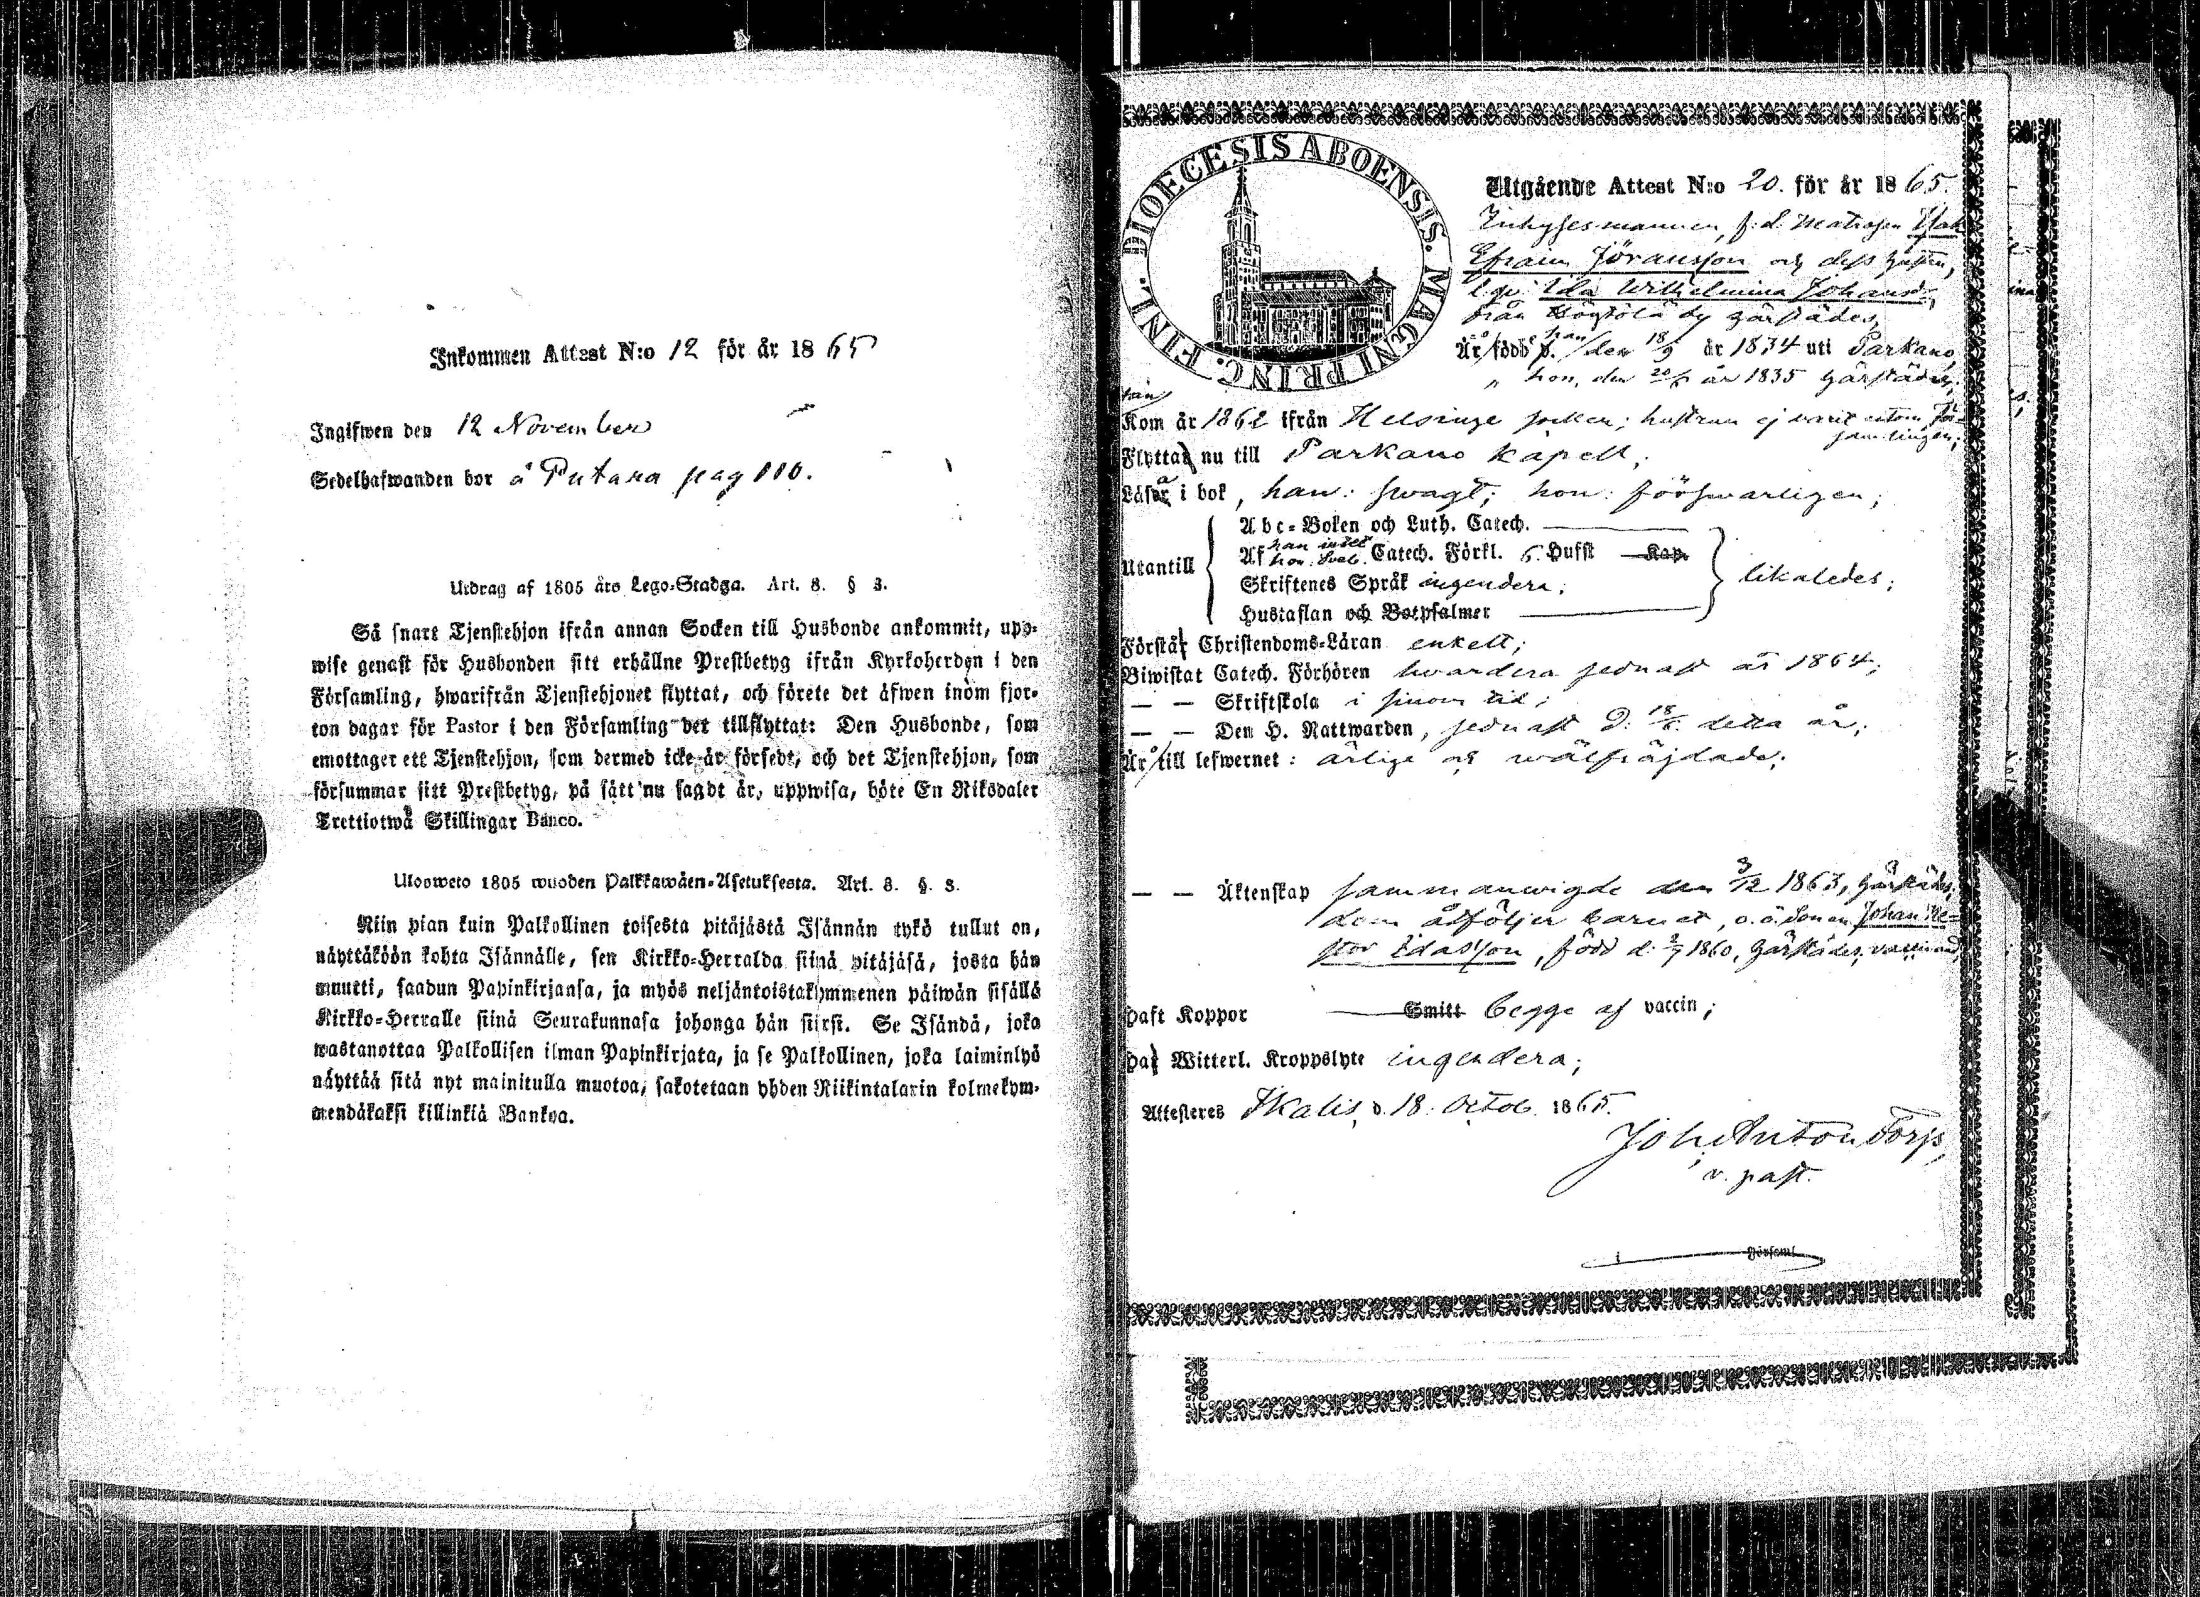 Inkommen Attest N:o 12 för år 1865
Ingifwen den 12 November
Sedelhafwanden bor å Putana pag 110.
Utdrag af 1805 års Lego-Stadga. Art. 8. § 3.
Så snart Tjenstehjon ifrån annan Socken till Husbonde ankommit, upp-
wise genast för Husbonden sitt erhållne Prestbetyg ifrån Kyrkoherden i den
Församling, hwarifrån Tjenstehjonet flyttat, och förete det äfwen inom fjor-
ton dagar för Pastor i den Församling det tillflyttat: Den Husbonde, som
emottager ett Tjenstehjon, som dermed icke är försedt, och det Tjenstehjon, som
försummar sitt Prestbetyg, på sätt nu sagdt är, uppwisa, böte En Riksdaler
Trettiotwå Skillingar Banco.
Ulosweto 1805 wuoden Palkkawäen-Asetuksesta. Art. 8. §. 3.
Niin pian kuin Palkollinen toisesta pitäjästä Isännän tykö tullut on,
näyttäköön kohta Isännälle, sen Kirkko-Herralda siinä pitäjäsä, josta hän
muutti, saadun Papinkirjansa, ja myös neljäntoistakymmenen päiwän sisällä
Kirkko-Herralle siinä Seurakunnasa johonga hän siirsi. Se Isändä, joka
wastanottaa Palkollisen ilman Papinkirjata, ja se Palkollinen, joka laiminlyö
näyttää sitä nyt mainitulla muotoa, sakotetaan yhden Riikintalarin kolmekym-
mendäkaksi killinkiä Bankoa.
DIOECESIS ABOENSIS. MAGNI PRINC. FINL.
Utgående Attest N:o 20. för år 1865.
Inhysesmannen, f. d. Matrosen Isak
Efraim Jöransson och dess hustru,
Ida Wilhelmina Johansd:r,
från by härstädes,
Är född han den 18/9 år 1834 uti Parkano,
" hon, den år 1835 härstädes,
han
Kom år 1862 ifrån Helsinge socken; hustrun ej varit utom för-
samlingen;
Flyttar nu till Parkano kapell;
Läser i bok, han: swagt; hon: förswarligen;
Utantill
Abc-Boken och Luth. Catech.
Af han intet hon Sveb. Catech. Förkl. 6 Hufst Kap.
Skriftenes Språk ingendera;
Hustaflan och Botpsalmer
likaledes;
Förstår Christendoms-Läran enkelt;
Biwistat Catech. Förhören hwardera sednast år 1864;
— — Skriftskola i sinom tid;
— — Den H. Nattwarden, sednast d. detta år;
Är till lefwernet: ärlige och wälfräjdade;
— — Äktenskap sammanwigde den 3/12 1863, härstädes;
dem åtföljer barnet, o. ä. Sonen Johan Ne-
stor Idasson, född d. 1860, härstädes, vaccinerad;
Haft Koppor Smitt begge af vaccin;
Har Witterl. Kroppslyte ingendera;
Attesteres Ikalis, d. 18. Octob. 1865.
Joh. Anton Forss,
v. past.
i Församl.